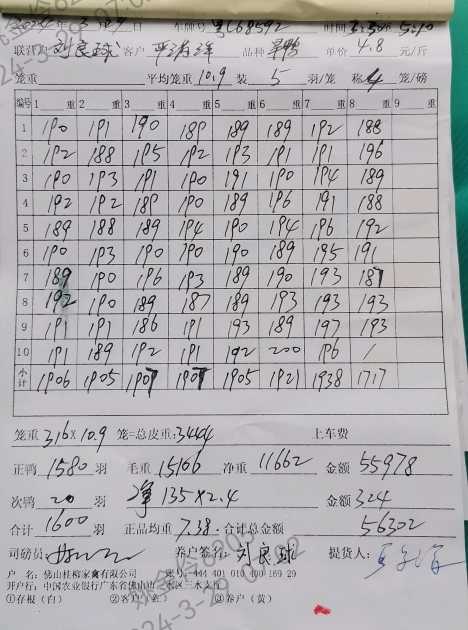 联养户 刘良球 客户 品种 单价 4.8 元/斤
笼重 平均笼重 10.9 装 5 羽/笼 称 4 笼/磅
编号 1 重 2 重 3 重 4 重 5 重 6 重 7 重 8 重 9 重
1 190 191 190 189 189 189 192 188
2 192 188 195 192 193 191 191 196
3 190 193 191 190 191 190 194 189
4 192 192 189 190 189 196 191 188
5 189 188 189 194 190 194 196 192
6 190 193 190 190 190 189 195 191
7 189 190 196 193 189 190 193 187
8 192 190 189 187 189 193 193 193
9 191 191 186 191 193 189 197 193
10 191 189 192 191 192 200 196 /
小计 1906 1905 1907 1907 1905 1921 1938 1717
笼重 316×10.9 笼=总皮重: 3444 上车费
正鸭 1580 羽 毛重 15106 净重 11662 金额 55978
次鸭 20 羽 净 135×2.4 金额 324
合计 1600 羽 正品均重 7.38 合计总金额 56302
司磅员: 养户签名: 刘良球 提货人:
户 名: 佛山桂柳家禽有限公司 账号: 444 401 010 400 169 29
开户行: 中国农业银行广东省佛山市三水区三水支行
①存根(白) ②客户(红) ③养户(黄)